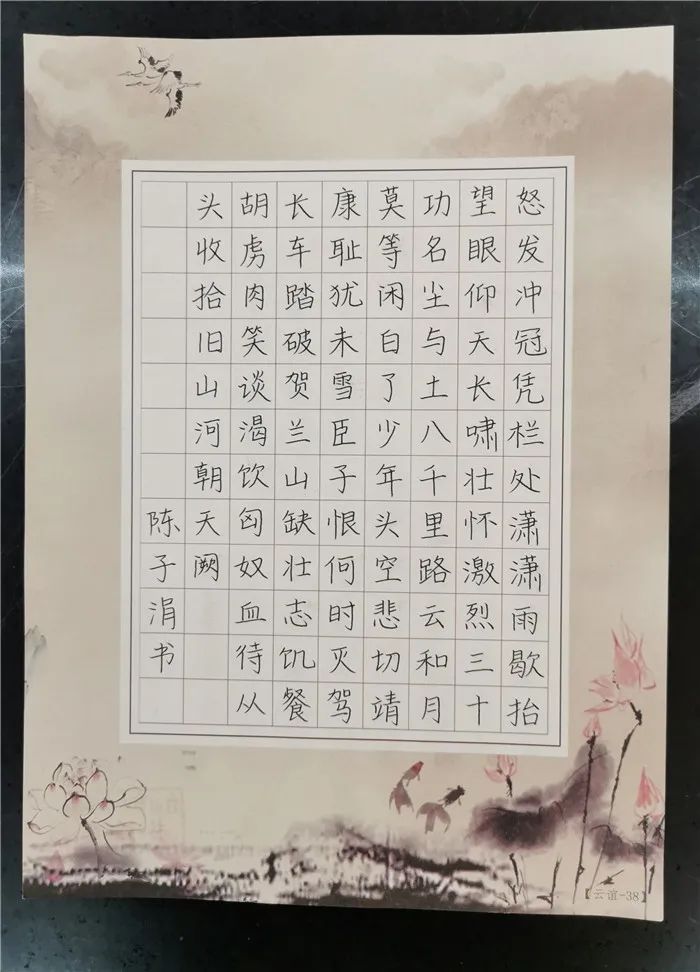 怒发冲冠凭栏处潇潇雨歇抬
望眼仰天长啸壮怀激烈三十
功名尘与土八千里路云和月
莫等闲白了少年头空悲切靖
康耻犹未雪臣子恨何时灭驾
长车踏破贺兰山缺壮志饥餐
胡虏肉笑谈渴饮匈奴血待从
头收拾旧山河朝天阙
陈子涓书
【云谊-38】